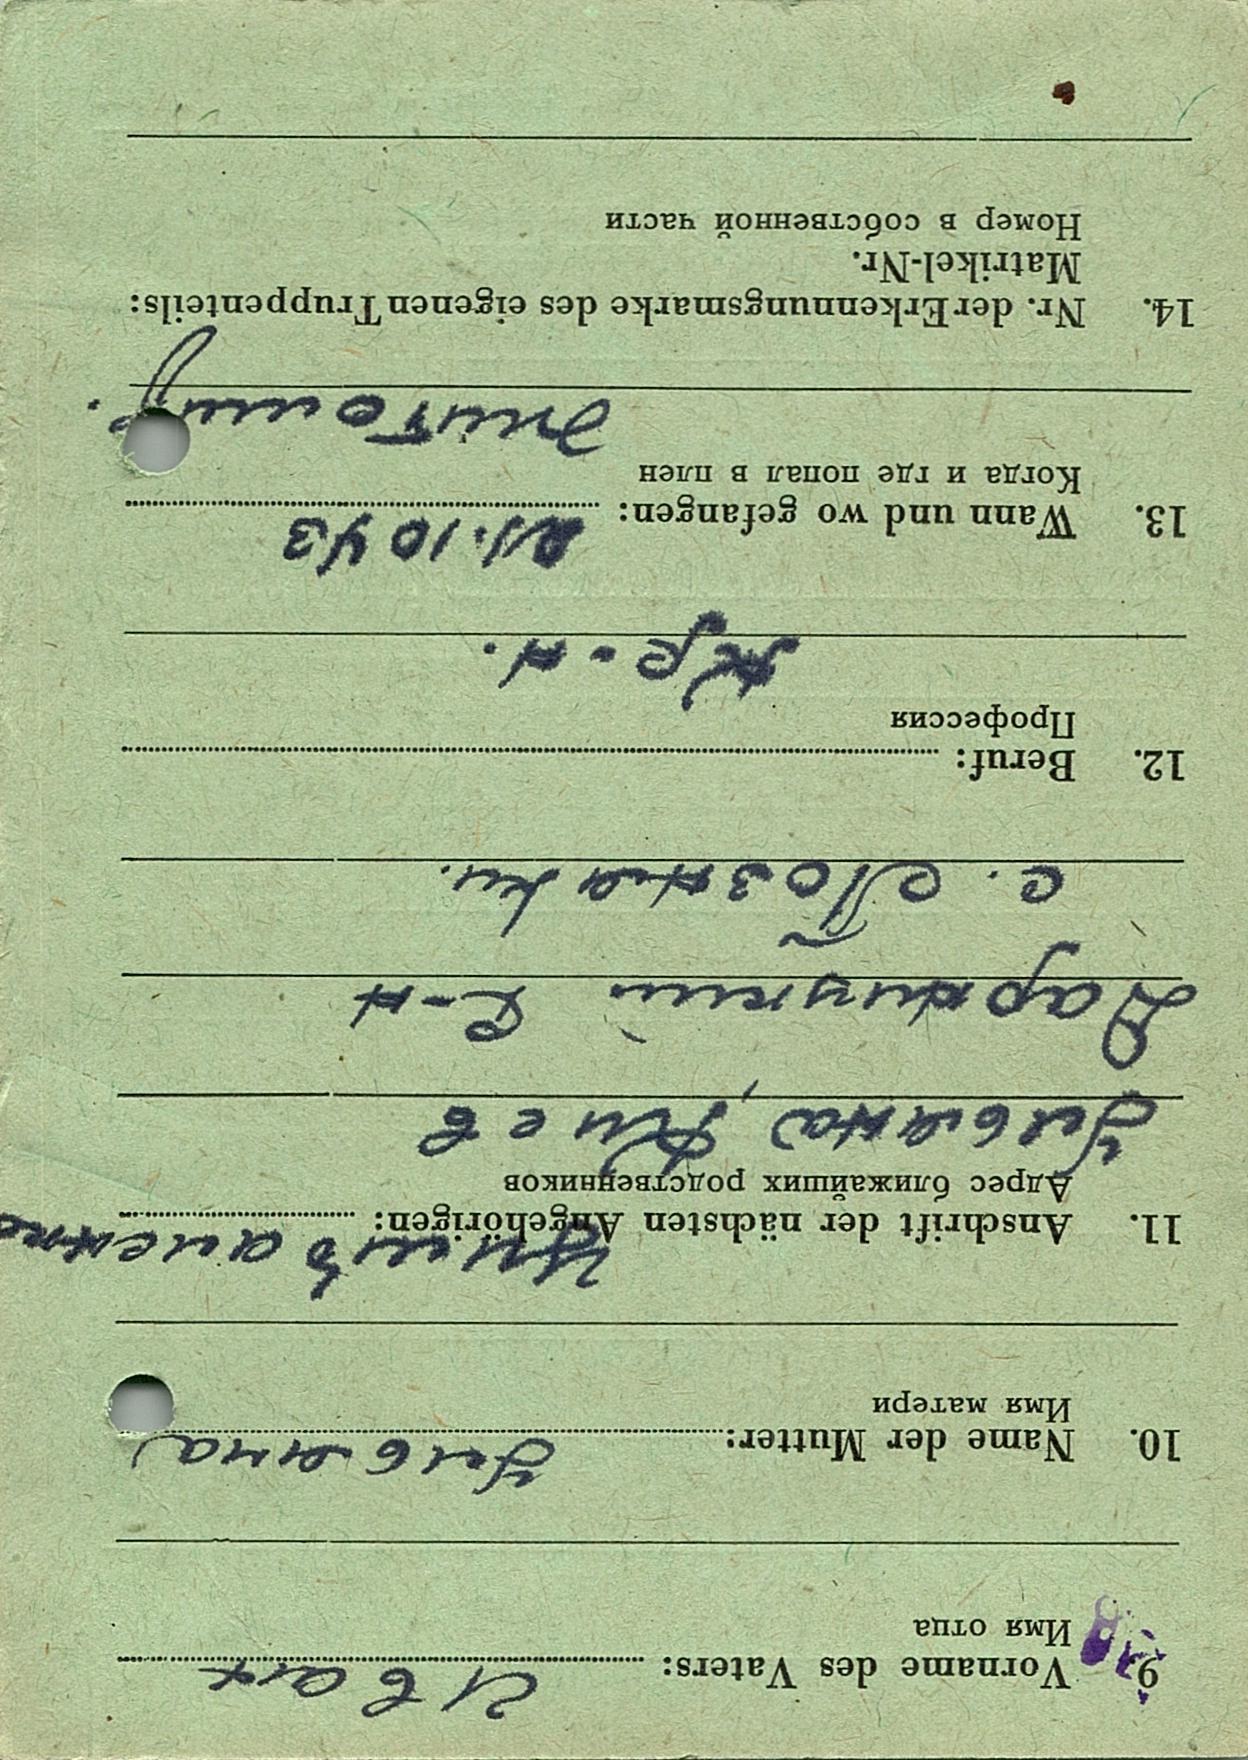 9. Vorname des Vaters: Иван
Имя отца
10. Name der Mutter: Ульяна
Имя матери
11. Anschrift der nächsten Angehörigen:
Адрес ближайших родственников
Ульяна, Киев
Дарницкий р-н
с. Позняки.
12. Beruf:
Профессия
кр-н.
13. Wann und wo gefangen: 21.10 43
Когда и где попал в плен
Житомир.
14. Nr. der Erkennungsmarke des eigenen Truppenteils:
Matrikel-Nr.
Номер в собственной части